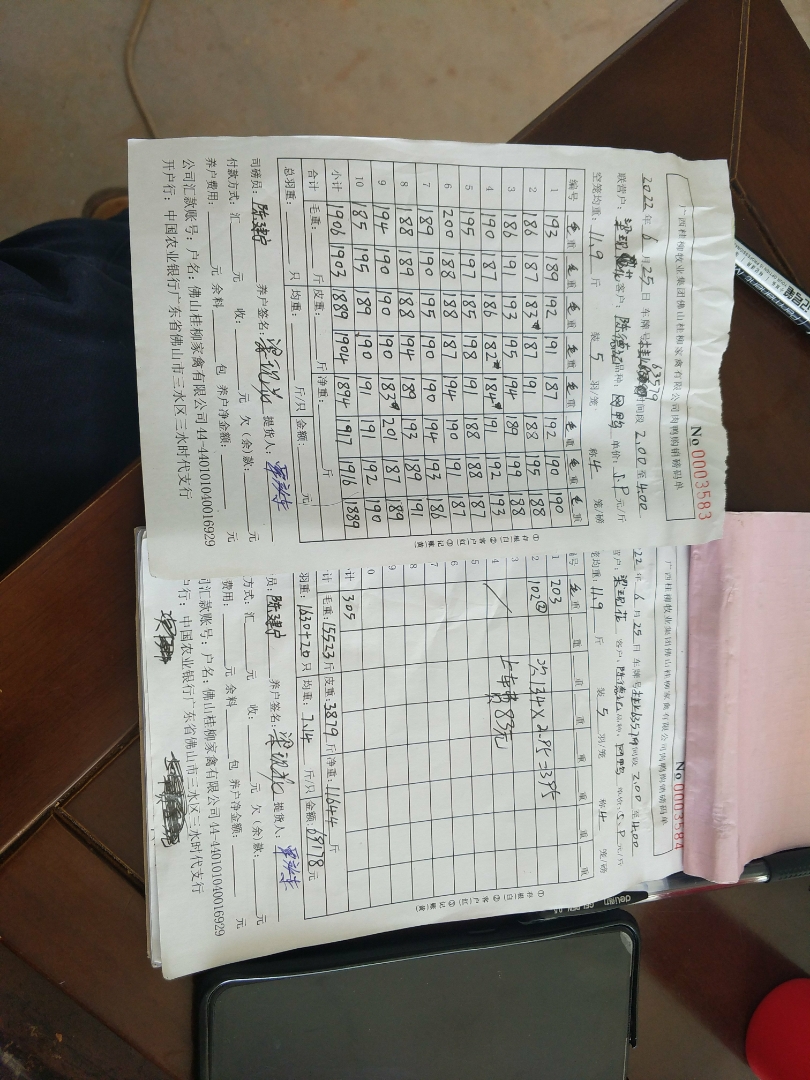 广西桂柳牧业集团佛山桂柳家禽有限公司肉鸭购销磅码单
No 0003583
2022年 6 月 25 日 车牌号 63579 时间段 2.00 至 4.00
联营户: 客户: 陈德 品种: 单价: 元/斤
空笼均重: 11.9 斤 装 5 羽/笼 称 4 笼/磅
编号 毛重 毛重 毛重 毛重 毛重 毛重 毛重 毛重
1 193 189 192 191 187 192 190 190
2 186 187 183 187 191 188 195 188
3 186 191 193 195 194 189 199 188
4 190 187 186 182 184 191 192 193
5 195 197 185 198 191 188 188 187
6 200 188 187 187 194 190 191 187
7 189 190 195 190 190 194 194 186
8 188 189 188 194 189 193 189 191
9 194 190 190 190 183 201 187 189
10 185 195 189 190 191 191 192 190
小计 1906 1903 1889 1904 1894 1917 1916 1889
合计 毛重: 斤 皮重: 斤 净重: 斤
总羽重: 只 均重: 斤/只 金额: 元
司磅员: 陈建 养户签名: 梁 提货人:
付款方式: 汇 元 收: 元 欠(余)款: 元
养户费用: 元 余料 包 养户净金额: 元
公司汇款账号: 户名: 佛山桂柳家禽有限公司 44-440101040016929
开户行: 中国农业银行广东省佛山市三水区三水时代支行
①存根白 ②客户红 ③记账黄
广西桂柳牧业集团佛山桂柳家禽有限公司肉鸭购销磅码单
No 0003584
22年 6 月 25 日 车牌号 63579 时间段 2.00 至 4.00
客户: 陈德 品种: 单价: 元/斤
笼均重: 11.9 斤 装 5 羽/笼 称 4 笼/磅
号 毛重 重 重 重 重 重 重
1 203
2 102②
3
4
5
6
7
8
9
0
计 305
计 毛重: 15523 斤 皮重: 3879 斤 净重: 11644 斤
羽重: 1630+20 只 均重: 7.14 斤/只 金额: 69178 元
员: 陈建 养户签名: 梁 提货人:
方式: 汇 元 收: 元 欠(余)款: 元
费用: 元 余料 包 养户净金额: 元
司汇款账号: 户名: 佛山桂柳家禽有限公司 44-440101040016929
行: 中国农业银行广东省佛山市三水区三水时代支行
①存根白 ②客户红 ③记账黄
deli